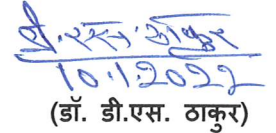 डी.एस. ठाकुर
10.1.2022
(डॉ. डी.एस. ठाकुर)